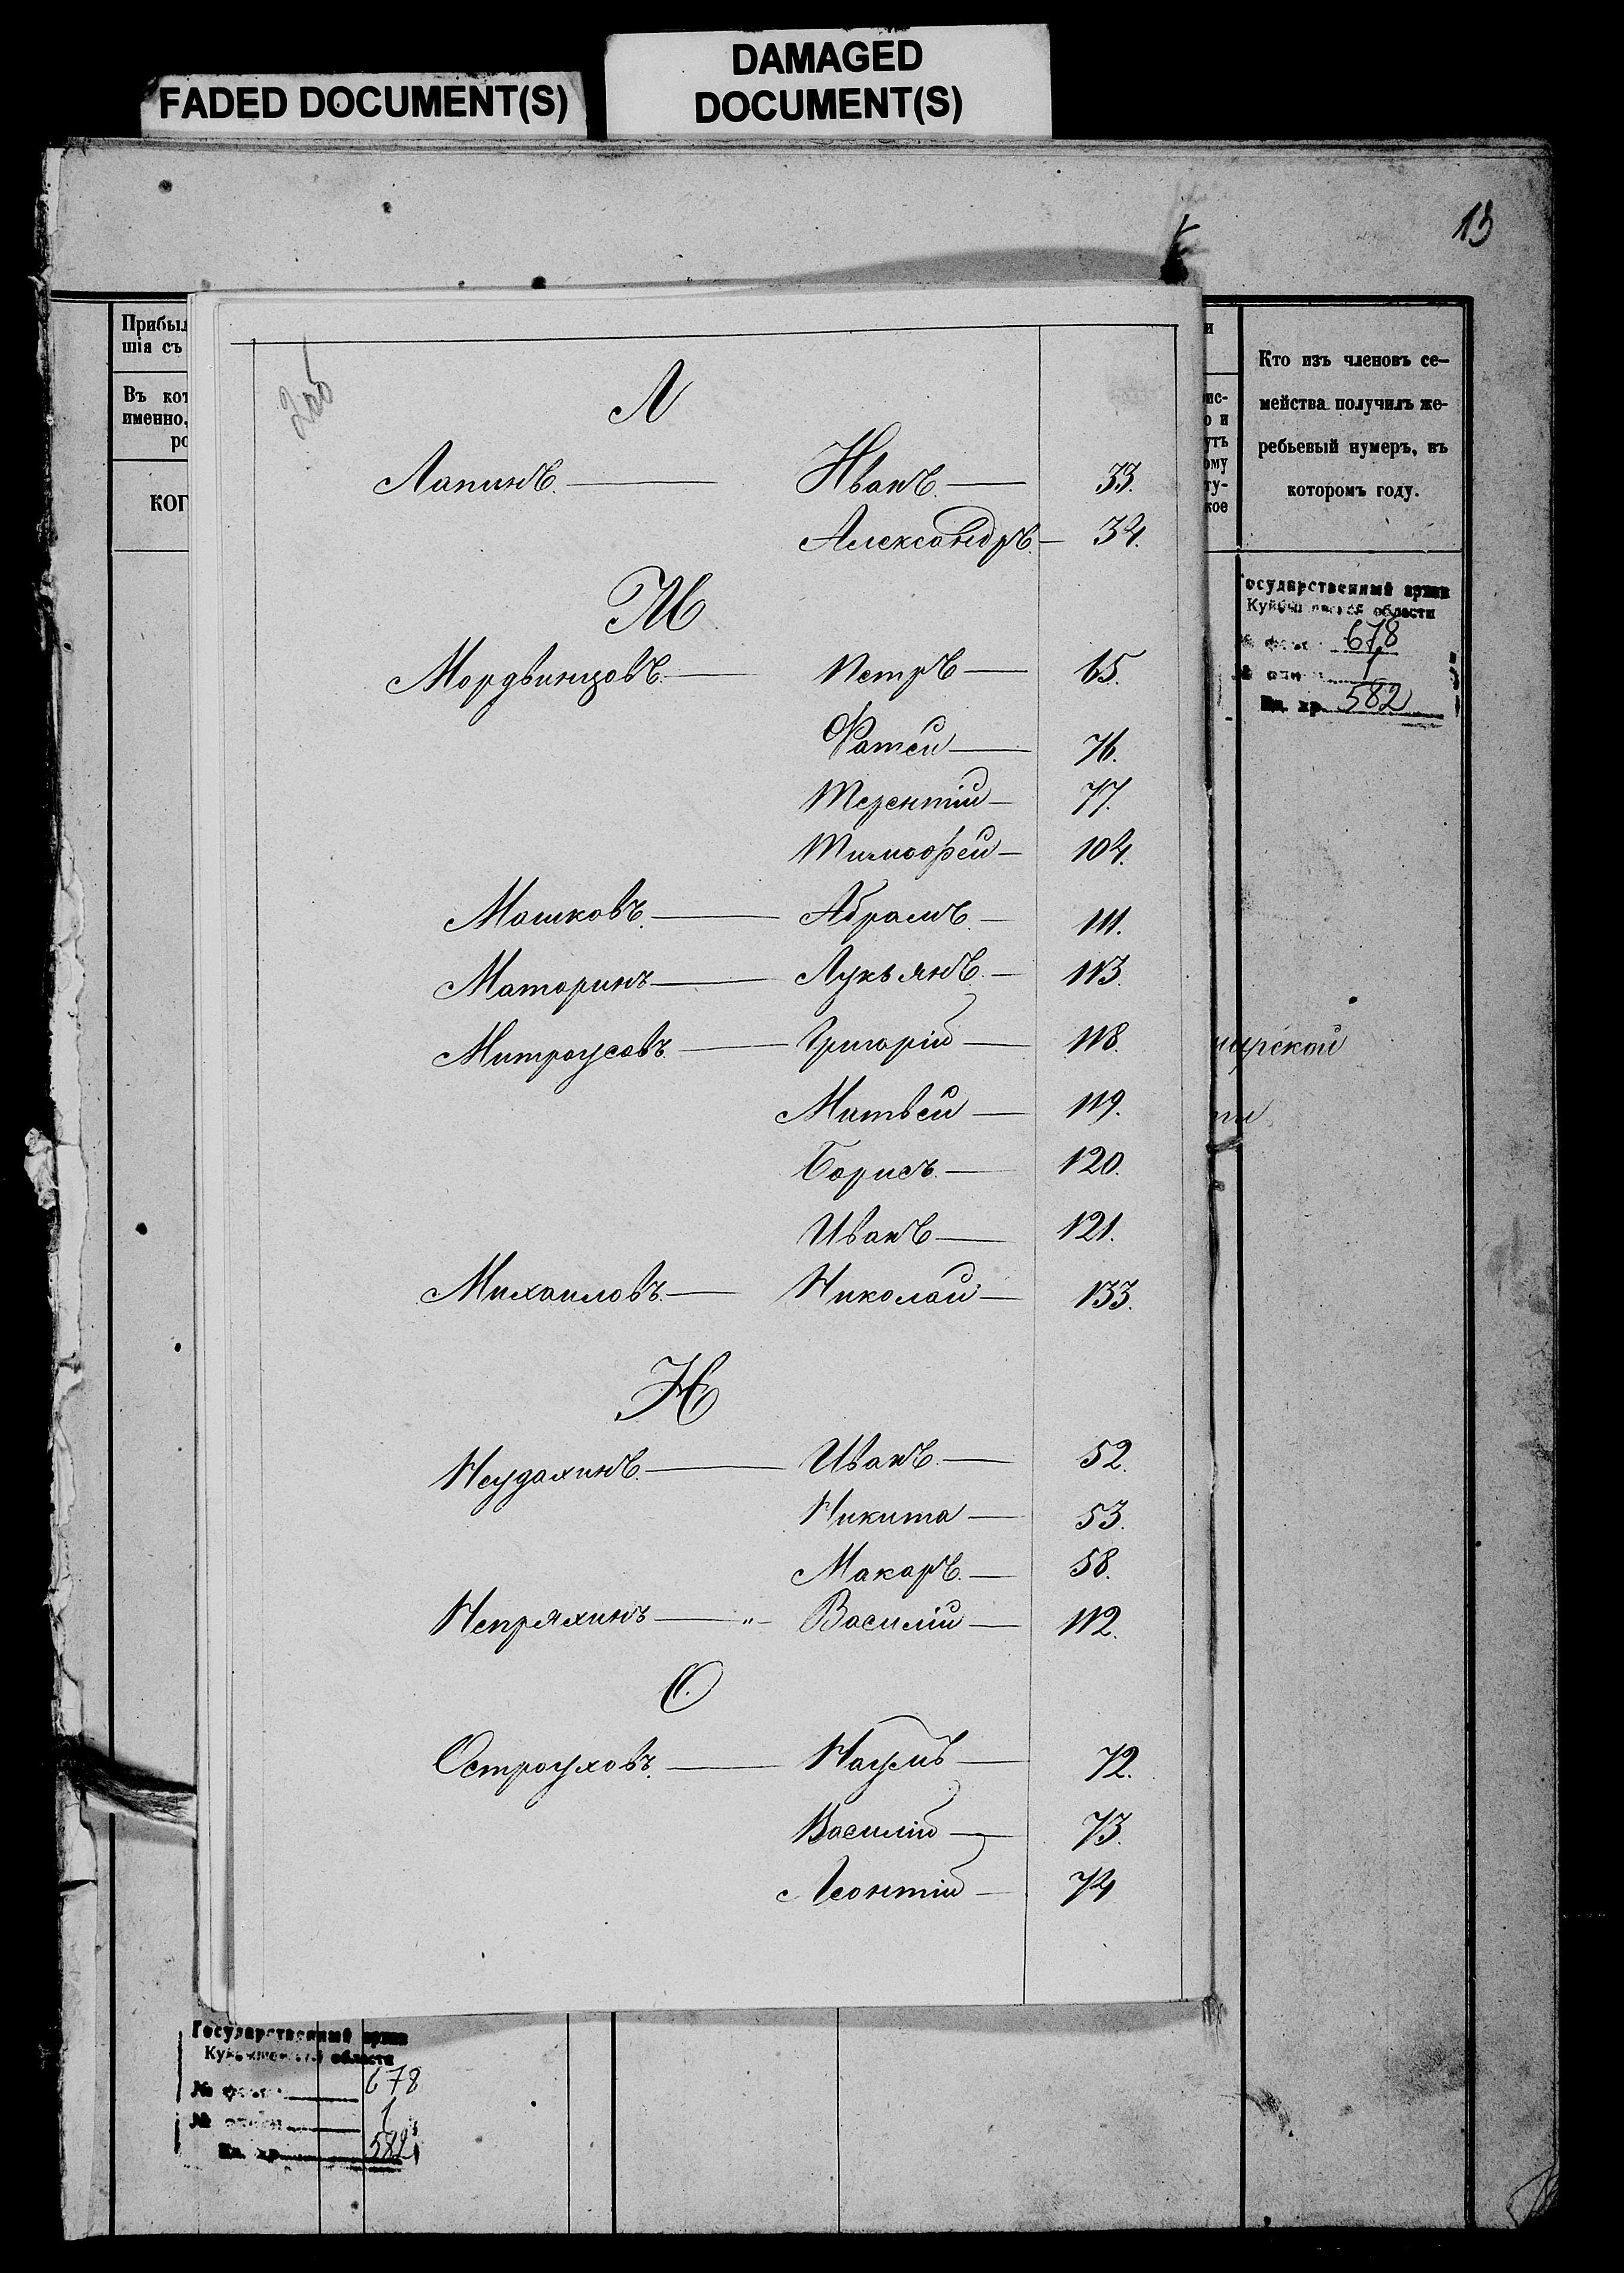 FADED DOCUMENT(S)
DAMAGED
DOCUMENT(S)
13
Прибыл
шія съ
Въ кот
именно,
ро
КОГ
и
Кто изъ членовъ се-
мейства получилъ же-
ребьевый нумеръ, въ
которомъ году.
ис-
о и
утъ
ому
ту-
кое
Государственный архив
Куйбышевской области
№ фонда 678
№ описи 1
Ед. хр. 582
Л
Лапинъ. — Иванъ. — 33.
Александръ. — 34.
М
Мордвинцовъ. — Петръ — 65.
Фатей — 76.
Терентій — 77.
Тимофей — 104.
Машковъ. — Абрамъ. — 111.
Маторинъ — Лукьянъ. — 113.
Митроусовъ. — Григорій — 118.
Матвей — 119.
Борисъ. — 120.
Иванъ — 121.
Михаиловъ. — Николай — 133.
Н
Неудахинъ. — Иванъ. — 52.
Никита — 53.
Макаръ. — 58.
Непряхинъ — „ — Василій — 112.
О.
Остроуховъ. — Наумъ — 72.
Василій — 73.
Леонтій — 74
ирской
Государственный архив
Куйбышевской области
№ фонда 678
№ описи 1
Ед. хр. 582